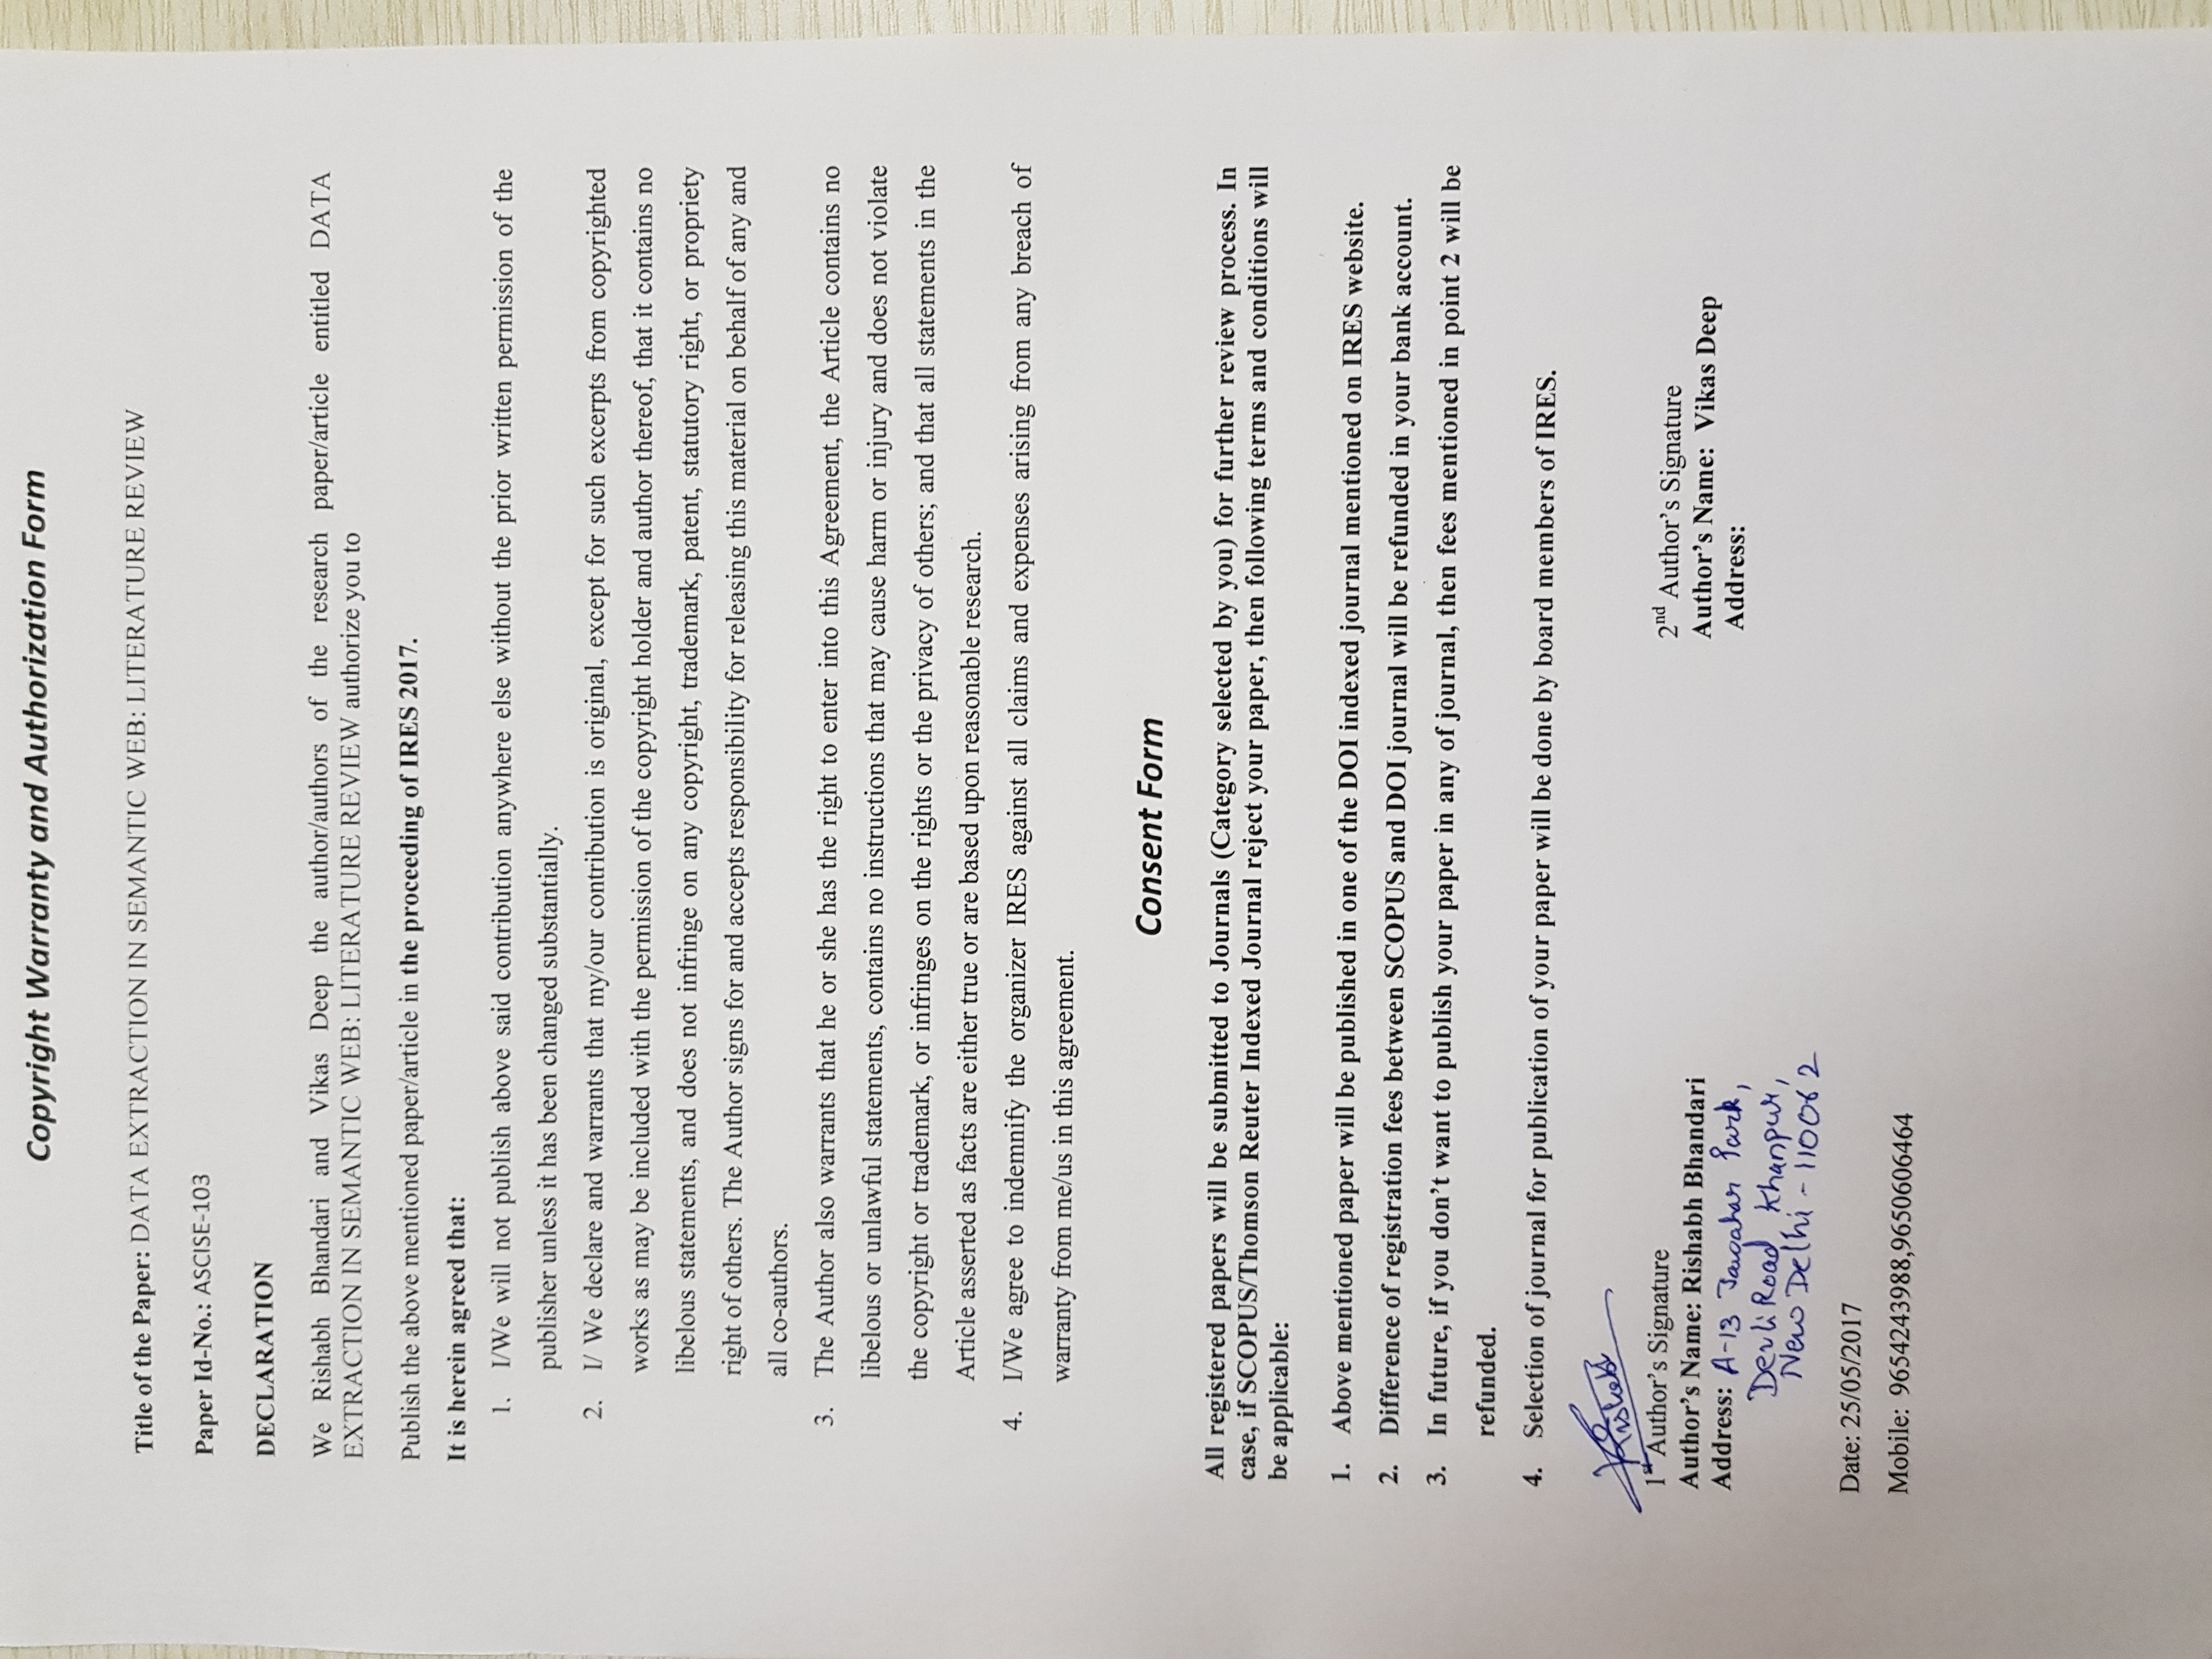 Copyright Warranty and Authorization Form
Title of the Paper: DATA EXTRACTION IN SEMANTIC WEB: LITERATURE REVIEW
Paper Id-No.: ASCISE-103
DECLARATION
We Rishabh Bhandari and Vikas Deep the author/authors of the research paper/article entitled DATA
EXTRACTION IN SEMANTIC WEB: LITERATURE REVIEW authorize you to
Publish the above mentioned paper/article in the proceeding of IRES 2017.
It is herein agreed that:
1. I/We will not publish above said contribution anywhere else without the prior written permission of the
publisher unless it has been changed substantially.
2. I/ We declare and warrants that my/our contribution is original, except for such excerpts from copyrighted
works as may be included with the permission of the copyright holder and author thereof, that it contains no
libelous statements, and does not infringe on any copyright, trademark, patent, statutory right, or propriety
right of others. The Author signs for and accepts responsibility for releasing this material on behalf of any and
all co-authors.
3. The Author also warrants that he or she has the right to enter into this Agreement, the Article contains no
libelous or unlawful statements, contains no instructions that may cause harm or injury and does not violate
the copyright or trademark, or infringes on the rights or the privacy of others; and that all statements in the
Article asserted as facts are either true or are based upon reasonable research.
4. I/We agree to indemnify the organizer IRES against all claims and expenses arising from any breach of
warranty from me/us in this agreement.
Consent Form
All registered papers will be submitted to Journals (Category selected by you) for further review process. In
case, if SCOPUS/Thomson Reuter Indexed Journal reject your paper, then following terms and conditions will
be applicable:
1. Above mentioned paper will be published in one of the DOI indexed journal mentioned on IRES website.
2. Difference of registration fees between SCOPUS and DOI journal will be refunded in your bank account.
3. In future, if you don't want to publish your paper in any of journal, then fees mentioned in point 2 will be
refunded.
4. Selection of journal for publication of your paper will be done by board members of IRES.
Rishabh
1st Author's Signature
Author's Name: Rishabh Bhandari
Address: A-13 Park,
Devli Road Khanpur,
New Delhi - 110062
2nd Author's Signature
Author's Name: Vikas Deep
Address:
Date: 25/05/2017
Mobile: 9654243988,9650606464